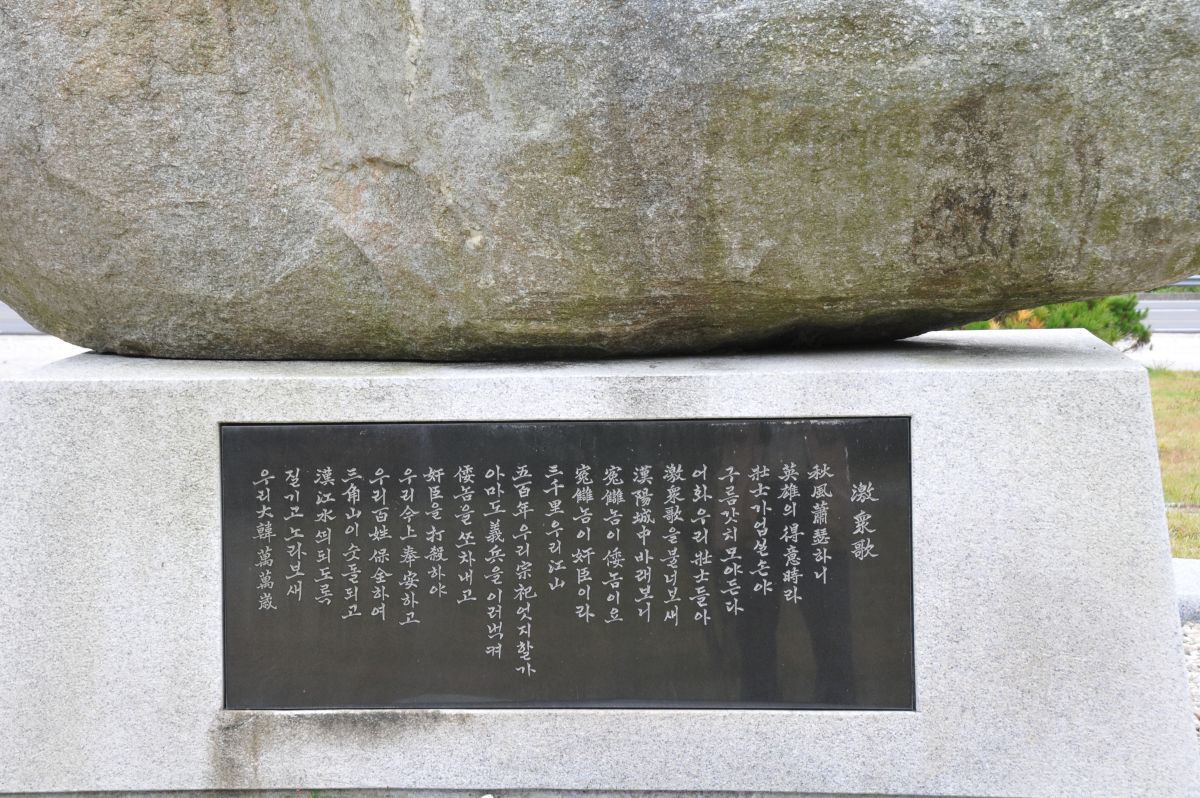 激衆歌
秋風蕭瑟하니
英雄의得意時라
壯士가업실손야
구름갓치모아든다
어화우리壯士들아
激衆歌을불너보새
漢陽城中바래보니
寃讎놈이倭놈이요
寃讎놈이奸臣이라
三千里우리江山
五百年우리宗祀엇지할가
아마도義兵을이러벅겨
倭놈을쪼차내고
奸臣을打殺하야
우리今上奉安하고
우리百姓保全하여
三角山이숫돌되고
漢江水띄되도록
질기고노라보새
우리大韓萬萬歲